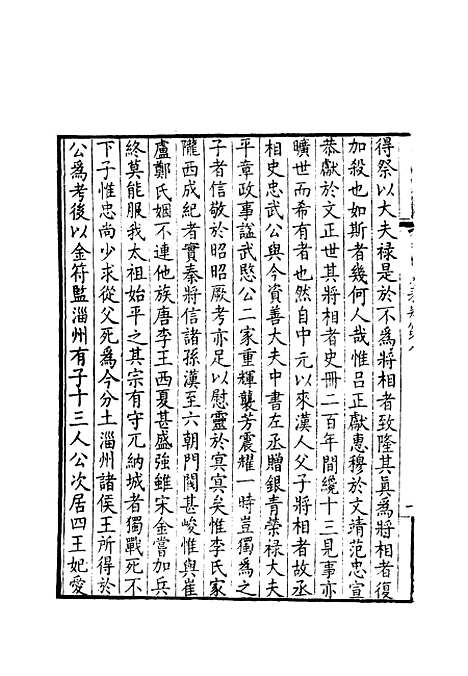 得祭以大夫禄是於不爲將相者致隆其眞爲將相者復
加殺也如斯者幾何人哉惟吕正獻惠穆於文靖范忠宣
恭獻於文正世其將相者史冊二百年間纔十三見事亦
曠世而希有者也然自中元以來漢人父子將相者故丞
相史忠武公與今資善大夫中書左丞贈銀青榮禄大夫
平章政事諡武愍公二家重輝襲芳震耀一時豈獨爲之
子者信敬於昭昭厥考亦足以慰靈於冥冥矣惟李氏家
隴西成紀者實秦將信諸孫漢至六朝門閥甚峻惟與崔
盧鄭氏姻不連他族唐李王西夏甚盛強雖宋金嘗加兵
終莫能服我太祖始平之其宗有守兀納城者獨戰死不
下子惟忠尚少求從父死爲今分土淄州諸侯王所得於
公爲考後以金符監淄州有子十三人公次居四王妃愛